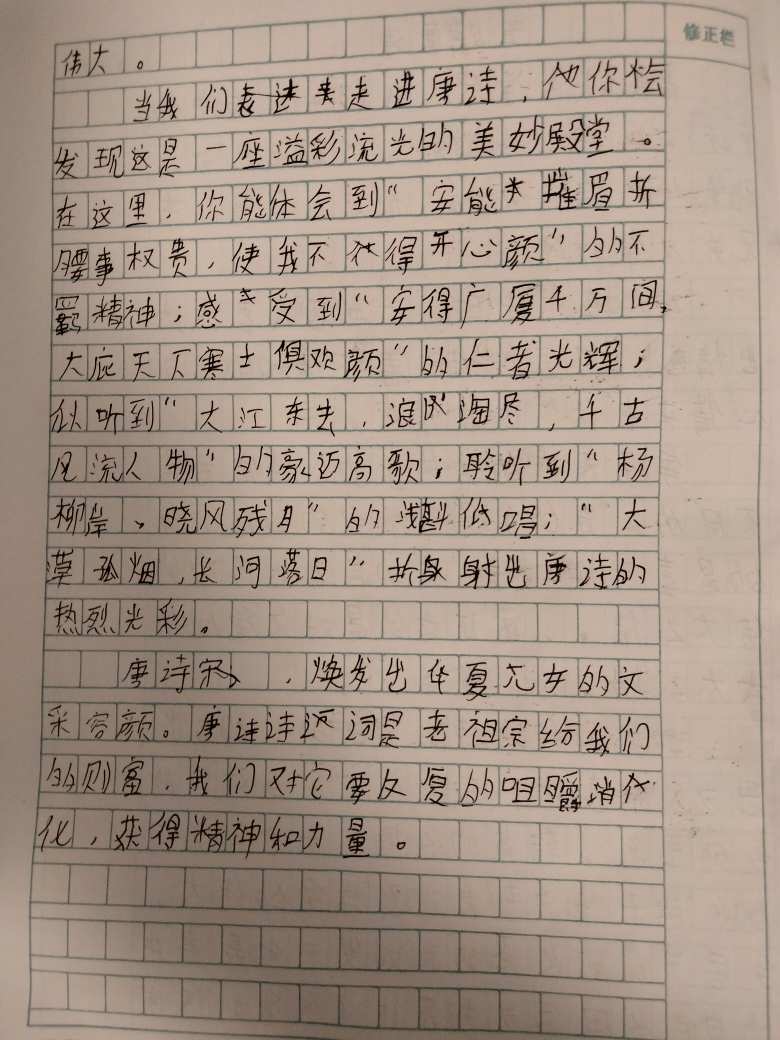 修正栏
伟大。
当我们走进唐诗，你会
发现这是一座溢彩流光的美妙殿堂。
在这里，你能体会到“安能摧眉折
腰事权贵，使我不得开心颜”的不
羁精神；感受到“安得广厦千万间，
大庇天下寒士俱欢颜”的仁者光辉；
听到“大江东去，浪淘尽，千古
风流人物”的豪迈高歌；聆听到“杨
柳岸、晓风残月”的浅斟低唱；“大
漠孤烟，长河落日”折射出唐诗的
热烈光彩。
唐诗宋，焕发出华夏儿女的文
采容颜。唐诗诗词是老祖宗给我们
的财富，我们对它要反复的咀嚼消
化，获得精神和力量。